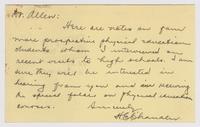 Dr. Allen:
Here are notes on four
more prospective physical education
students whom I interviewed on
recent visits to high schools. I am
sure they will be interested in
hearing from you and our
special folder on physical education
courses.
Sincerely,